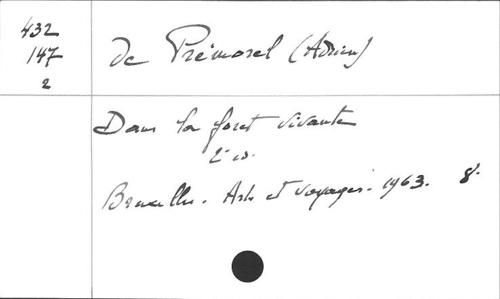 432
147
2
de Prémorel (Adrien)
Dans la foret vivante
2e éd.
Bruxelles. Arts et voyages. 1963. 8°